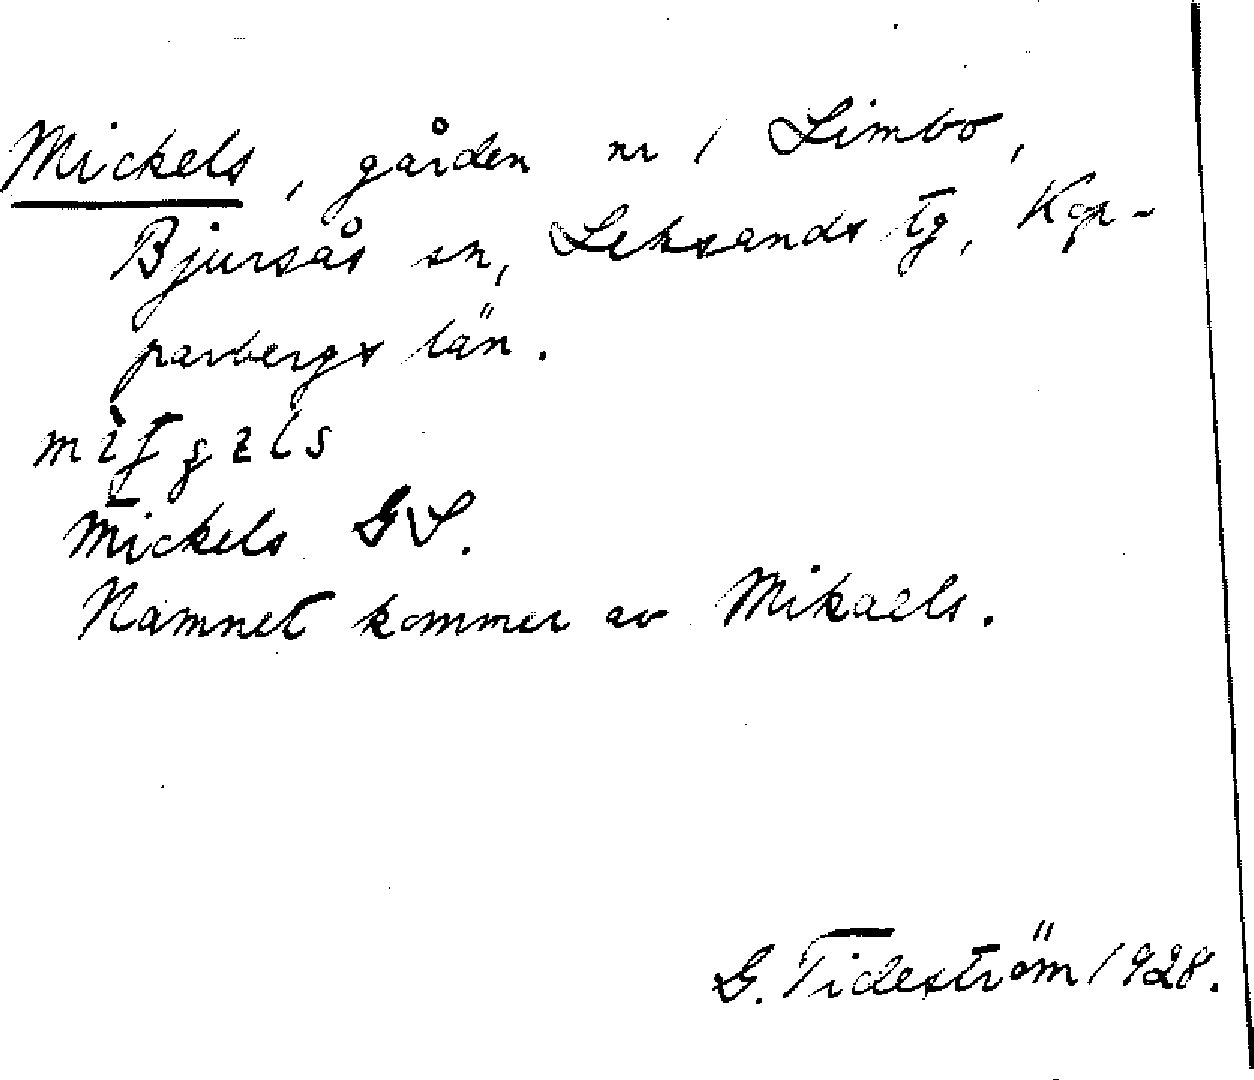 Mickels, gården nr 1 Limbo,
Bjursås sn, Leksands tg, Kop-
parbergs län.
Mickels GS.
Namnet kommer av Mikaels.
G. Tideström 1928.